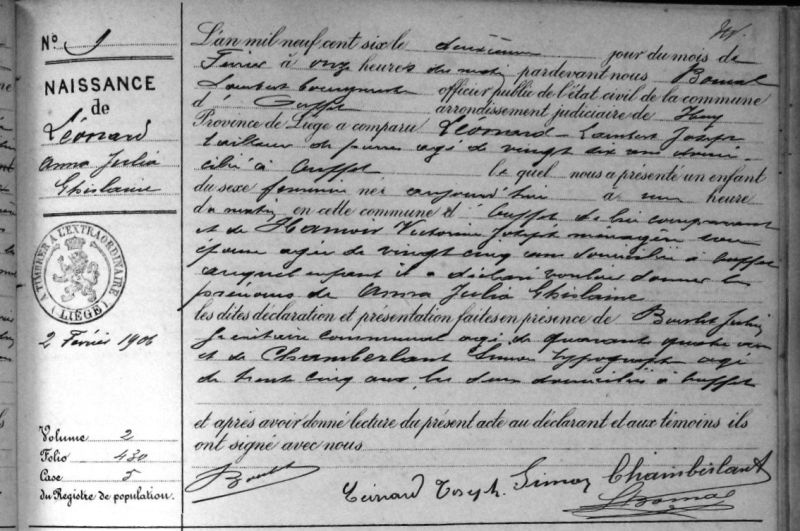 N° 9
NAISSANCE
de
Léonard
Anna Julia
Ghislaine
A TIMBRER A L'EXTRAORDINAIRE
(LIÈGE)
2 Février 1906
Volume 2
Folio 430
Case 5
du Registre de population.
L'an mil neuf cent six le deuxième jour du mois de
Février à onze heures du matin pardevant nous Bomal
Lambert bourgmestre officier public de l'état civil de la commune
d' Ouffet arrondissement judiciaire de Huy
Province de Liège a comparu Léonard Lambert Joseph
tailleur de pierres agé de vingt six ans domi-
cilié à Ouffet lequel nous a présenté un enfant
du sexe féminin née aujourd'hui à une heure
du matin en cette commune d' Ouffet de lui comparant
et de Hamoir Victorine Joseph ménagère son
épouse agée de vingt cinq ans domiciliée à Ouffet
auquel enfant il a déclaré vouloir donner les
prénoms de Anna Julia Ghislaine
les dites déclaration et présentation faites en présence de Jules
secrétaire communal agé de quarante quatre ans
et de Chamberlant Simon typographe agé
de trente cinq ans les deux domiciliés à Ouffet
et après avoir donné lecture du présent acte au déclarant et aux témoins ils
ont signé avec nous
Léonard Joseph. Simon Chamberlant
LBomal